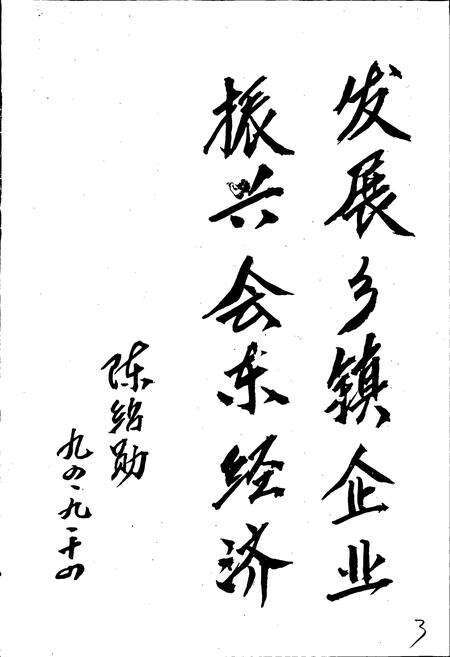 发展乡镇企业
振兴会东经济
陈绍勋
九四·九·二十四
3